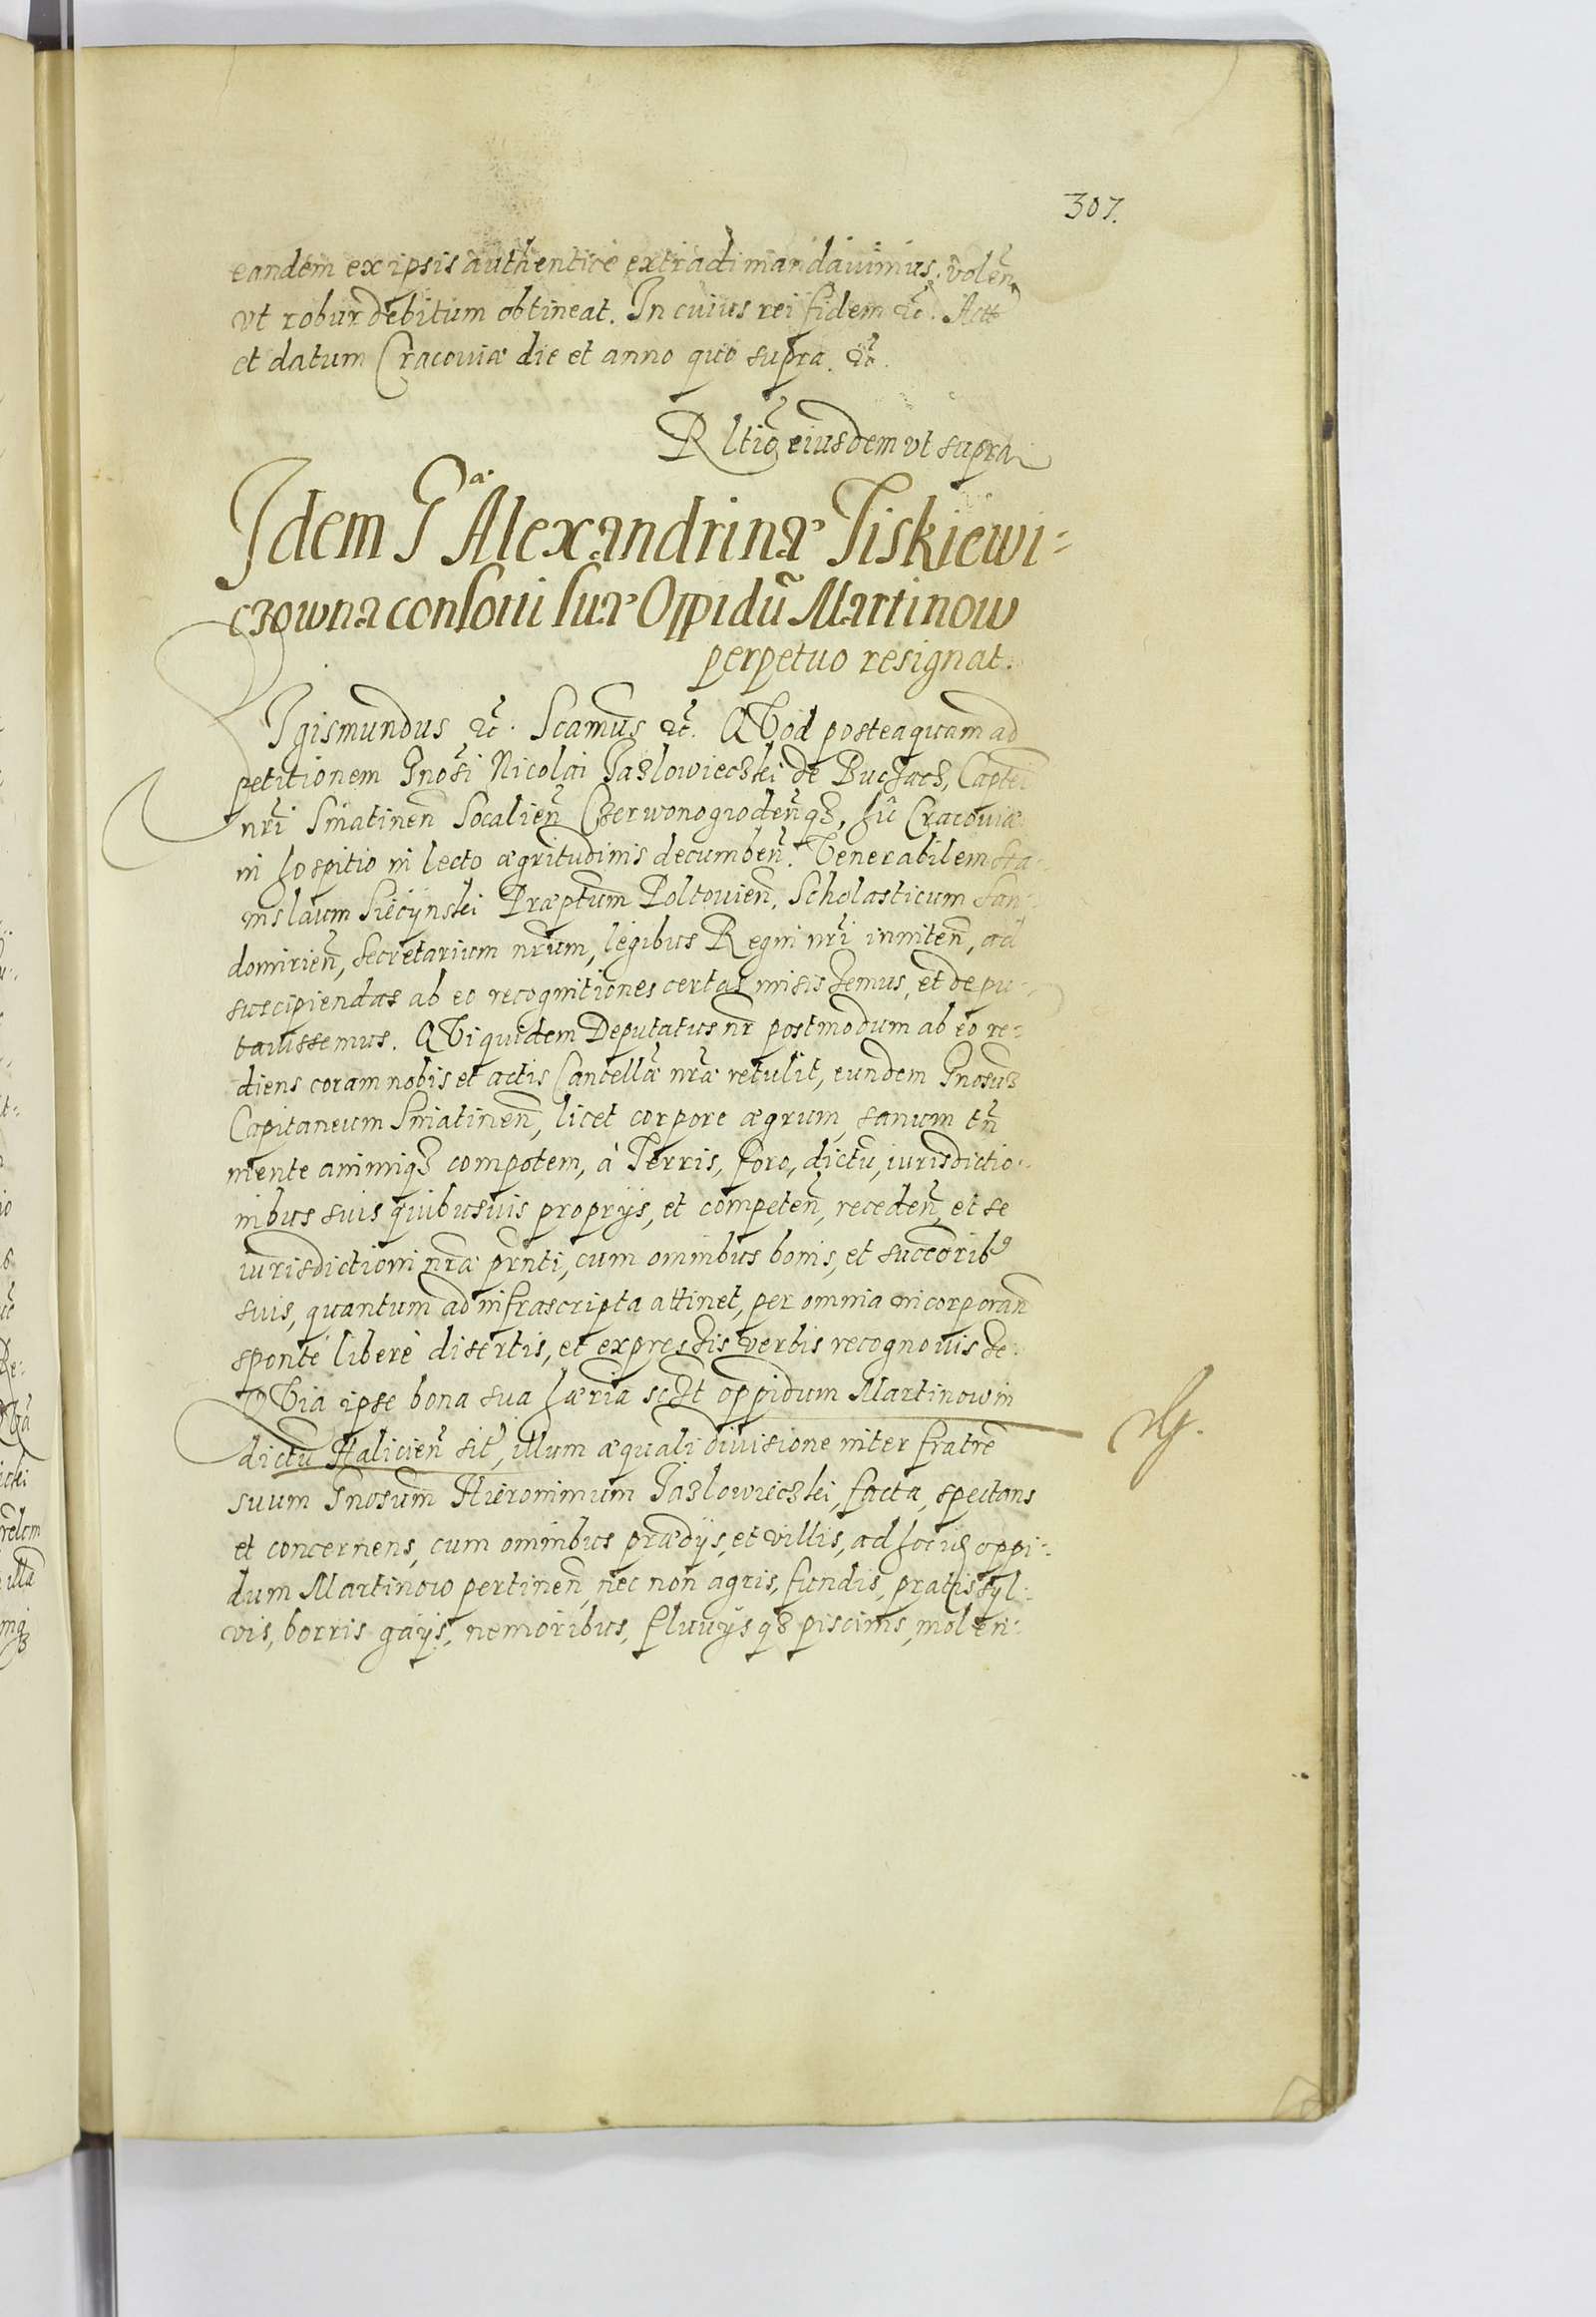 307.
eandem ex ipsis authentice extradi mandauimus, volen̄
vt robur debitum obtineat. In cuius rei fidem etc̃. Actũ
et datum Cracouiæ die et anno quo supra. etc̃.
Rltio eiusdem vt supra
Idem Gᵃ Alexandrinæ Tiskiewi=
czowna consorti suæ Oppidũ Martinow
perpetuo resignat.
Sigismundus etc̃. Scamus etc̃. QVod posteaquam ad
petitionem Gnosi Nicolai Jazlowieczki de Buczacz, Captei
nr̃i Sniatinen̄ Socalien̄ Czerwonogroden̄q3, hic Cracouiæ
in hospitio in lecto ægritudinis decumben̄. Venerabilem Sta-
nislaum Siecynski Præptum Poltouien̄, Scholasticum San-
domirien̄, secretarium nr̃um, legibus Regni nr̃i inniten̄, ad
suscipiendas ab eo recognitiones certas misissemus, et depu-
tauissemus. QVi quidem Deputatus nr̃ postmodum ab eo re:
diens coram nobis et actis Cancellæ nr̃æ retulit, eundem Gnosum
Capitaneum Sniatinen̄, licet corpore ægrum, sanum tñ
mente animiq3 compotem, à Terris, foro, dictũ, iurisdictio:
nibus suis quibusuis proprijs, et competen̄, receden̄, et se
iurisdictioni nr̃æ pr̃nti, cum omnibus bonis, et succoribꝰ
suis, quantum ad infrascripta attinet, per omnia incorporan̄
sponte libere disertis, et expressis verbis recognouisse.
QVia ipse bona sua hæria sc̃t oppidum Martinow in
dictũ Halicien̄ sit̃, illum æquali diuisione inter fratrẽ
suum Gnosum Hieronimum Jazlowieczki, facta, spectans
et concernens, cum omnibus prædijs, et villis, ad hocius oppi:
dum Martinow pertinen̄, nec non agris, fundis, pratis syl:
vis, borris gáijs, nemoribus, fluuijsq3 piscinis, molen: